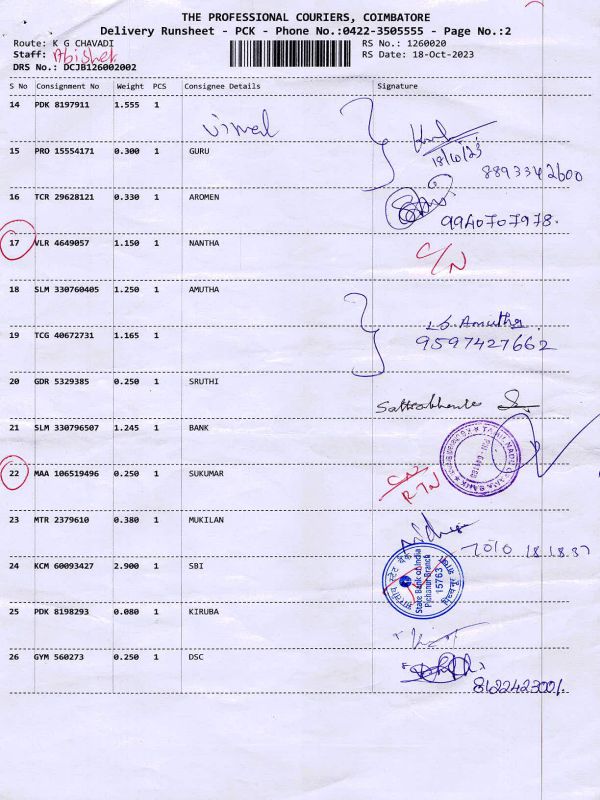 THE PROFESSIONAL COURIERS, COIMBATORE
Delivery Runsheet - PCK - Phone No.:0422-3505555 - Page No.:2
Route: K G CHAVADI RS No.: 1260020
Staff: Abishek RS Date: 18-Oct-2023
DRS No.: DCJB126002002
S No Consignment No Weight PCS Consignee Details Signature
14 PDK 8197911 1.555 1 vimal
18/10/23
15 PRO 15554171 0.300 1 GURU 8893342600
16 TCR 29628121 0.330 1 AROMEN
9940707978.
17 VLR 4649057 1.150 1 NANTHA C/N
18 SLM 330760405 1.250 1 AMUTHA
Amutha
19 TCG 40672731 1.165 1 9597427662
20 GDR 5329385 0.250 1 SRUTHI
21 SLM 330796507 1.245 1 BANK
22 MAA 106519496 0.250 1 SUKUMAR
RTN
23 MTR 2379610 0.380 1 MUKILAN
7010 18 18 37
24 KCM 60093427 2.900 1 SBI
State Bank of India
Pichanur Branch
15763
25 PDK 8198293 0.080 1 KIRUBA
26 GYM 560273 0.250 1 DSC
8122423001.